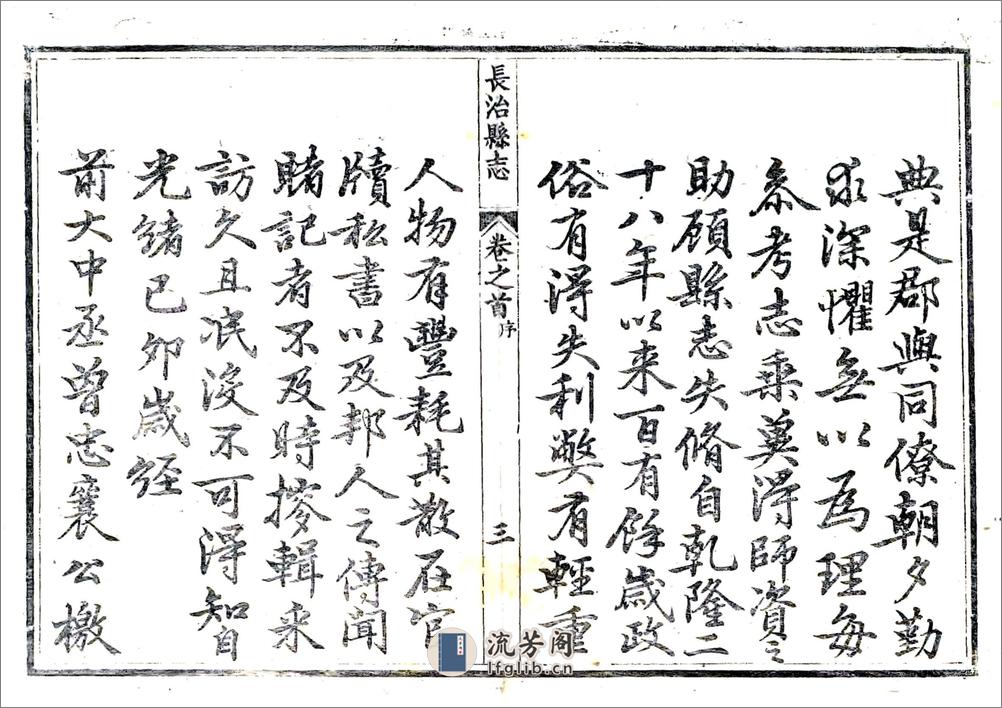 典是郡與同僚朝夕勤
求深懼無以為理每
叅考志乘冀得師資之
助顧縣志失脩自乾隆二
十八年以来百有餘歲政
俗有得失利弊有輕重
長治縣志
卷之首序
三
人物有豐耗其散在官
牘私書以及邦人之傳聞
睹記者不及時摉輯采
訪久且泯没不可得知自
光緒己卯歲經
前大中丞曾忠襄公檄
流芳阁
lfglib.cn